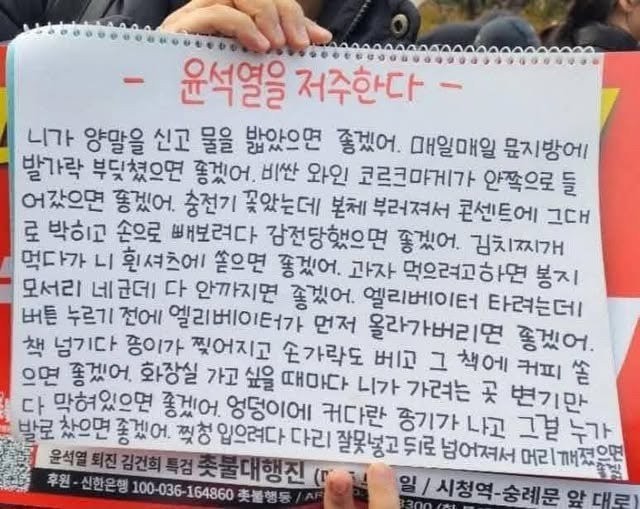 - 윤석열을 저주한다 -
니가 양말을 신고 물을 밟았으면 좋겠어. 매일매일 문지방에
발가락 부딪쳤으면 좋겠어. 비싼 와인 코르크마게가 안쪽으로 들
어갔으면 좋겠어. 충전기 꽂았는데 본체 부러져서 콘센트에 그대
로 박히고 손으로 빼보려다 감전당했으면 좋겠어. 김치찌개
먹다가 니 흰셔츠에 쏟으면 좋겠어. 과자 먹으려고하면 봉지
모서리 네군데 다 안까지면 좋겠어. 엘리베이터 타려는데
버튼 누르기 전에 엘리베이터가 먼저 올라가버리면 좋겠어.
책 넘기다 종이가 찢어지고 손가락도 베고 그 책에 커피 쏟
으면 좋겠어. 화장실 가고 싶을 때마다 니가 가려는 곳 변기만
다 막혀있으면 좋겠어. 엉덩이에 커다란 종기가 나고 그걸 누가
발로 찼으면 좋겠어. 찢청 입으려다 다리 잘못넣고 뒤로 넘어져서 머리 깨졌으면
좋겠어
윤석열 퇴진 김건희 특검 촛불대행진 일 / 시청역-숭례문 앞 대로)
후원 - 신한은행 100-036-164860 촛불행동 / 3300